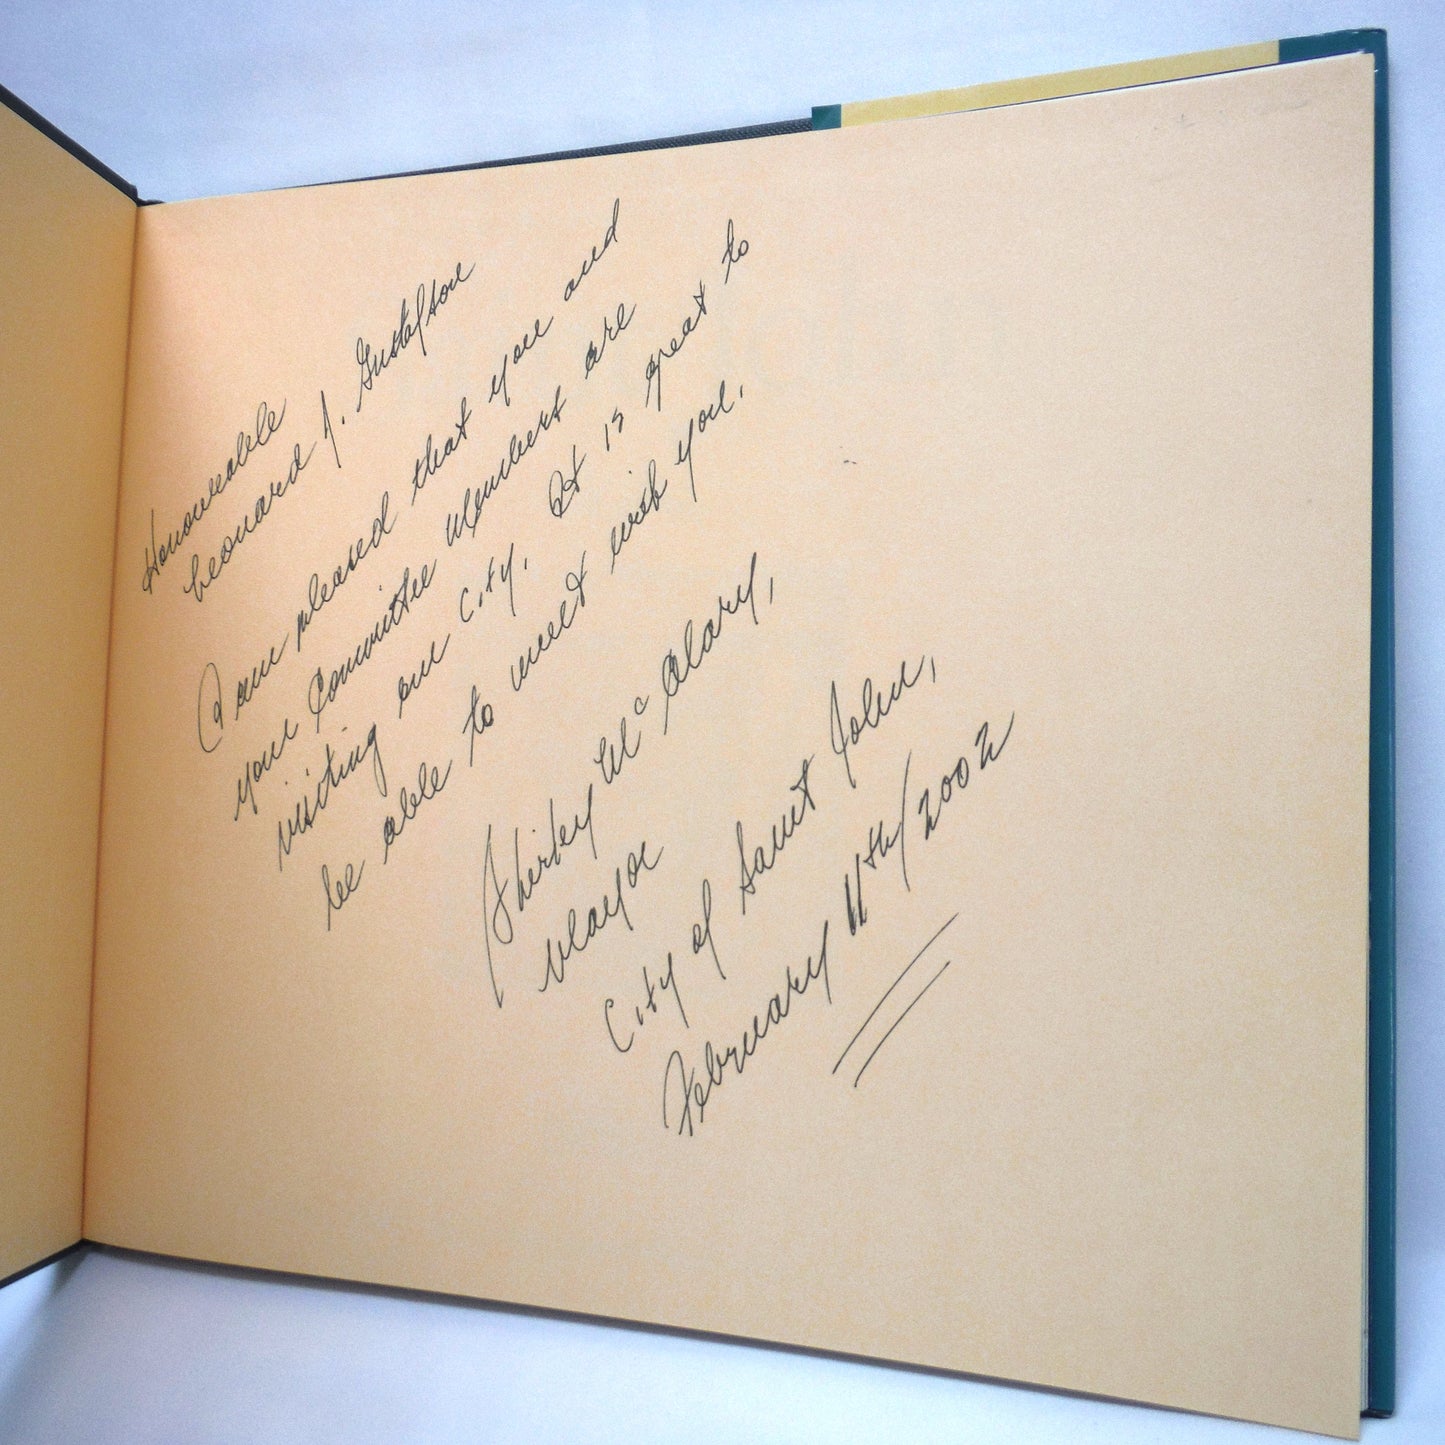 Honourable
Leonard J. Gustafson
I am pleased that you and
your Committee Members are
visiting our City. It is great to
be able to meet with you.
Shirley McAlary,
Mayor
City of Saint John,
February 11th/2002